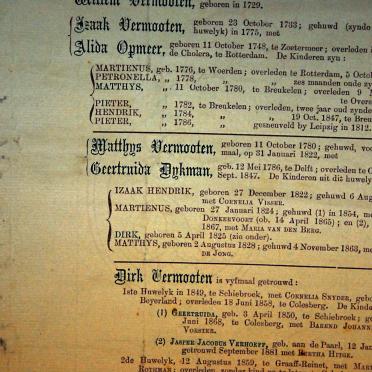 Willem Vermooten, geboren in 1729.
Izaak Vermooten, geboren 23 October 1733; gehuwd (zynde
huwelyk) in 1775, met
Alida Opmeer, geboren 11 October 1748, te Zoetermeer; overleden
de Cholera, te Rotterdam. De Kinderen zyn:
MARTIENUS, geb. 1776, te Woerden; overleden te Rotterdam, 5 Octo
PETRONELLA, „ 1778, zes maanden oude zy
MATTHYS, „ 11 October 1780, te Breukelen; overleden 9
te Overs
PIETER, „ 1782, te Breukelen; overleden, twee jaar oud zynde
HENDRIK, „ 1784, „ „ 19 Oct. 1847, te Breu
PIETER, „ 1786, „ gesneuveld by Leipzig in 1812.
Matthys Vermooten, geboren 11 October 1780; gehuwd, voo
maal, op 31 January 1822, met
Geertruida Dykman, geb. 12 Mei 1786, te Delft; overleden te
Sept. 1847. De Kinderen uit dit huwely
IZAAK HENDRIK, geboren 27 December 1822; gehuwd 6 Aug
met CORNELIA VISSER.
MARTIENUS, geboren 27 January 1824; gehuwd (1) in 1854, me
DONKERVOORT (ob. 14 April 1865); en (2),
1867, met MARIA VAN DEN BERG.
DIRK, geboren 5 April 1825 (zie onder).
MATTHYS, geboren 2 Augustus 1828; gehuwd 4 November 1863, me
DE JONG.
Dirk Vermooten is vyfmaal getrouwd:
1ste Huwelyk in 1849, te Schiebroek, met CORNELIA SNYDER, geb
Beyerland; overleden 18 Juni 1858, te Colesberg. De Kindere
(1) GEERTRUIDA, geb. 3 April 1850, te Schiebroek; g
Juni 1868, te Colesberg, met BAREND JOHANN
VORSTER.
(2) JASPER JACOBUS VERHOEFF, geb. aan de Paarl, 12 Jan
getrouwd September 1881 met BERTHA HITGE.
2de Huwelyk, 12 Augustus 1859, te Graaff-Reinet, met MAR